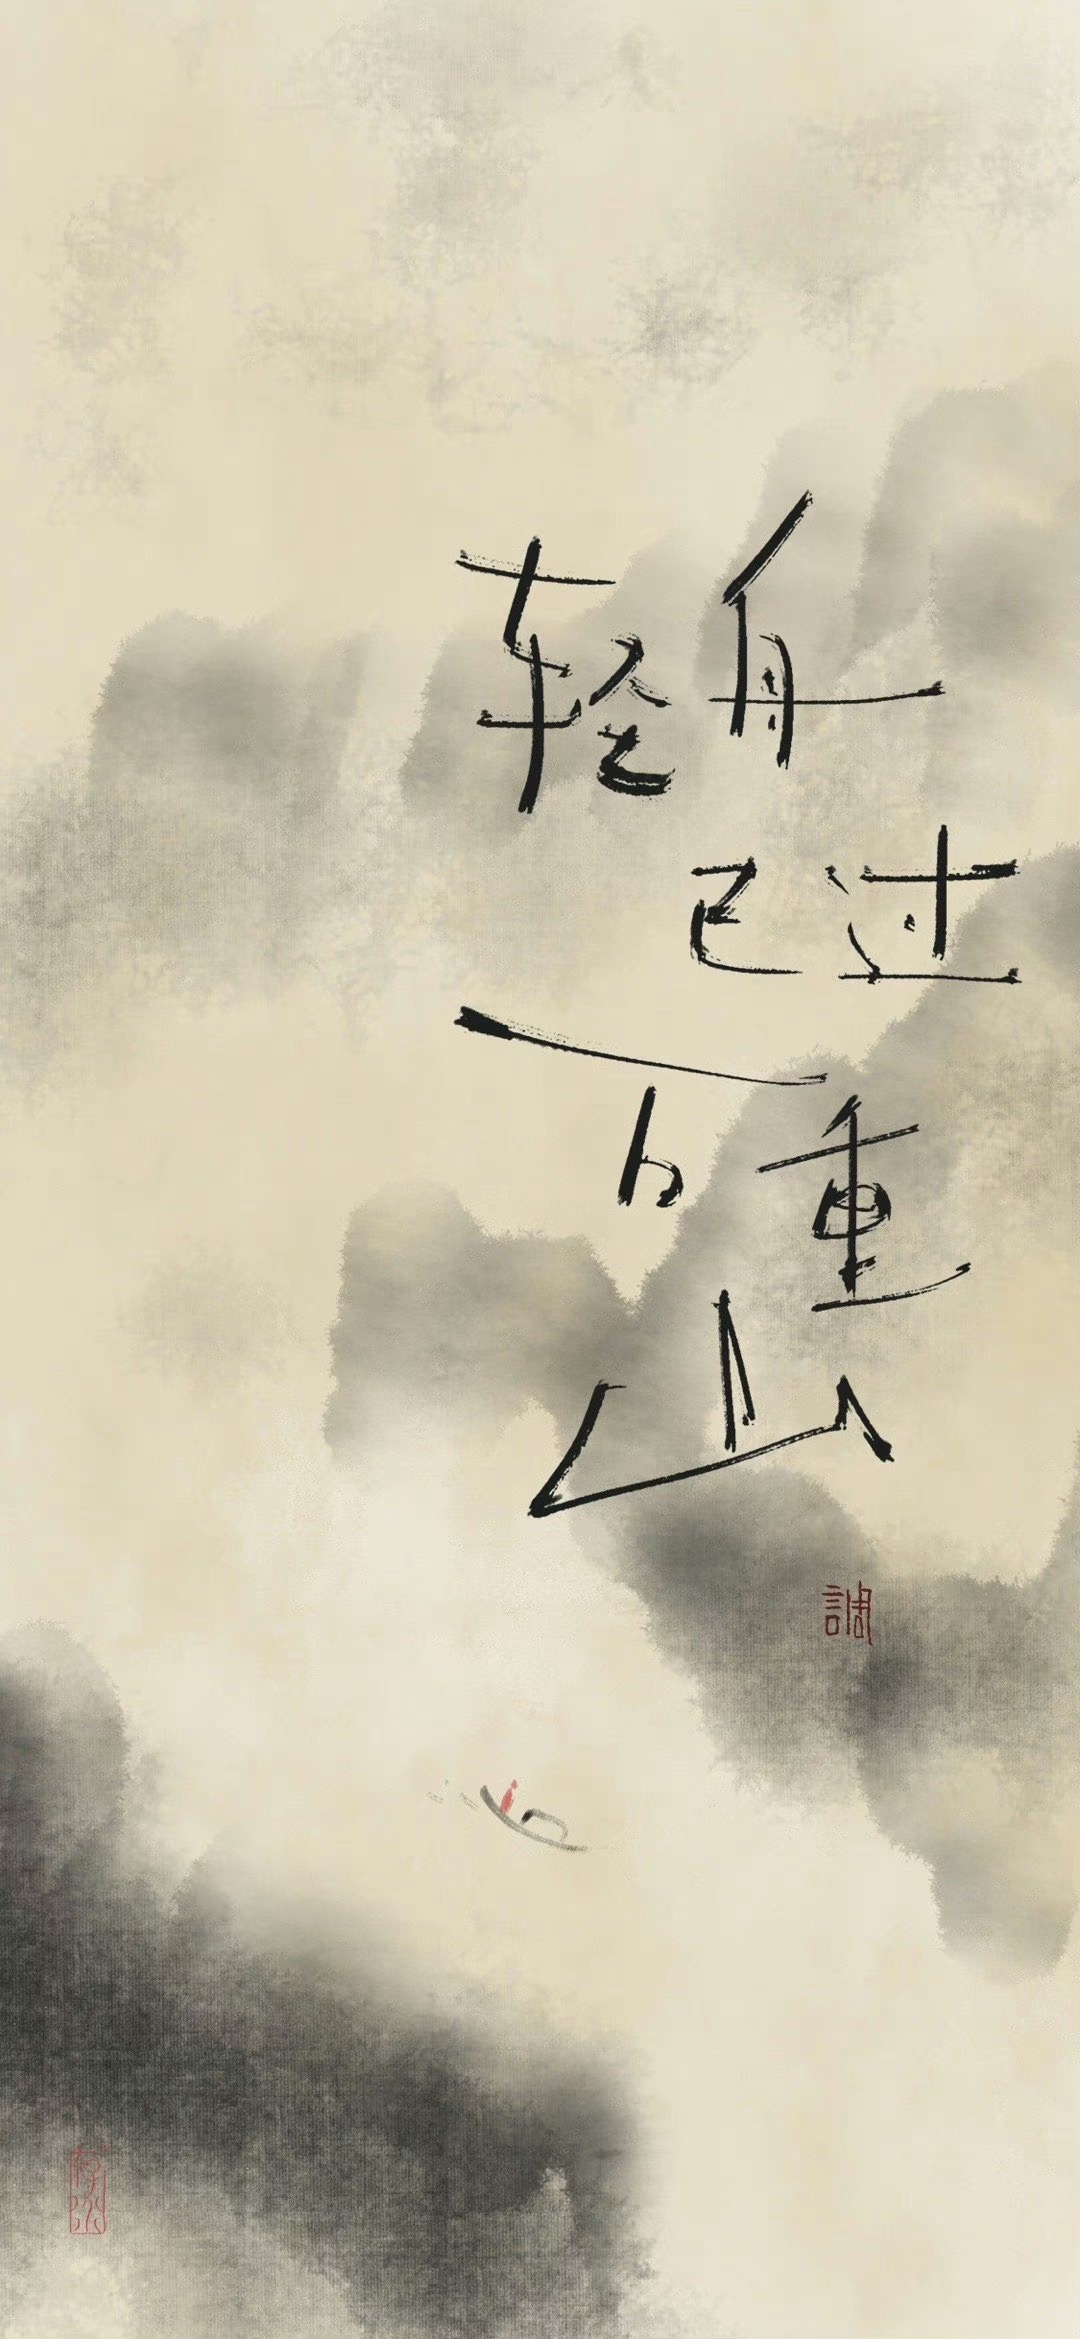 轻舟
已过
万重
山